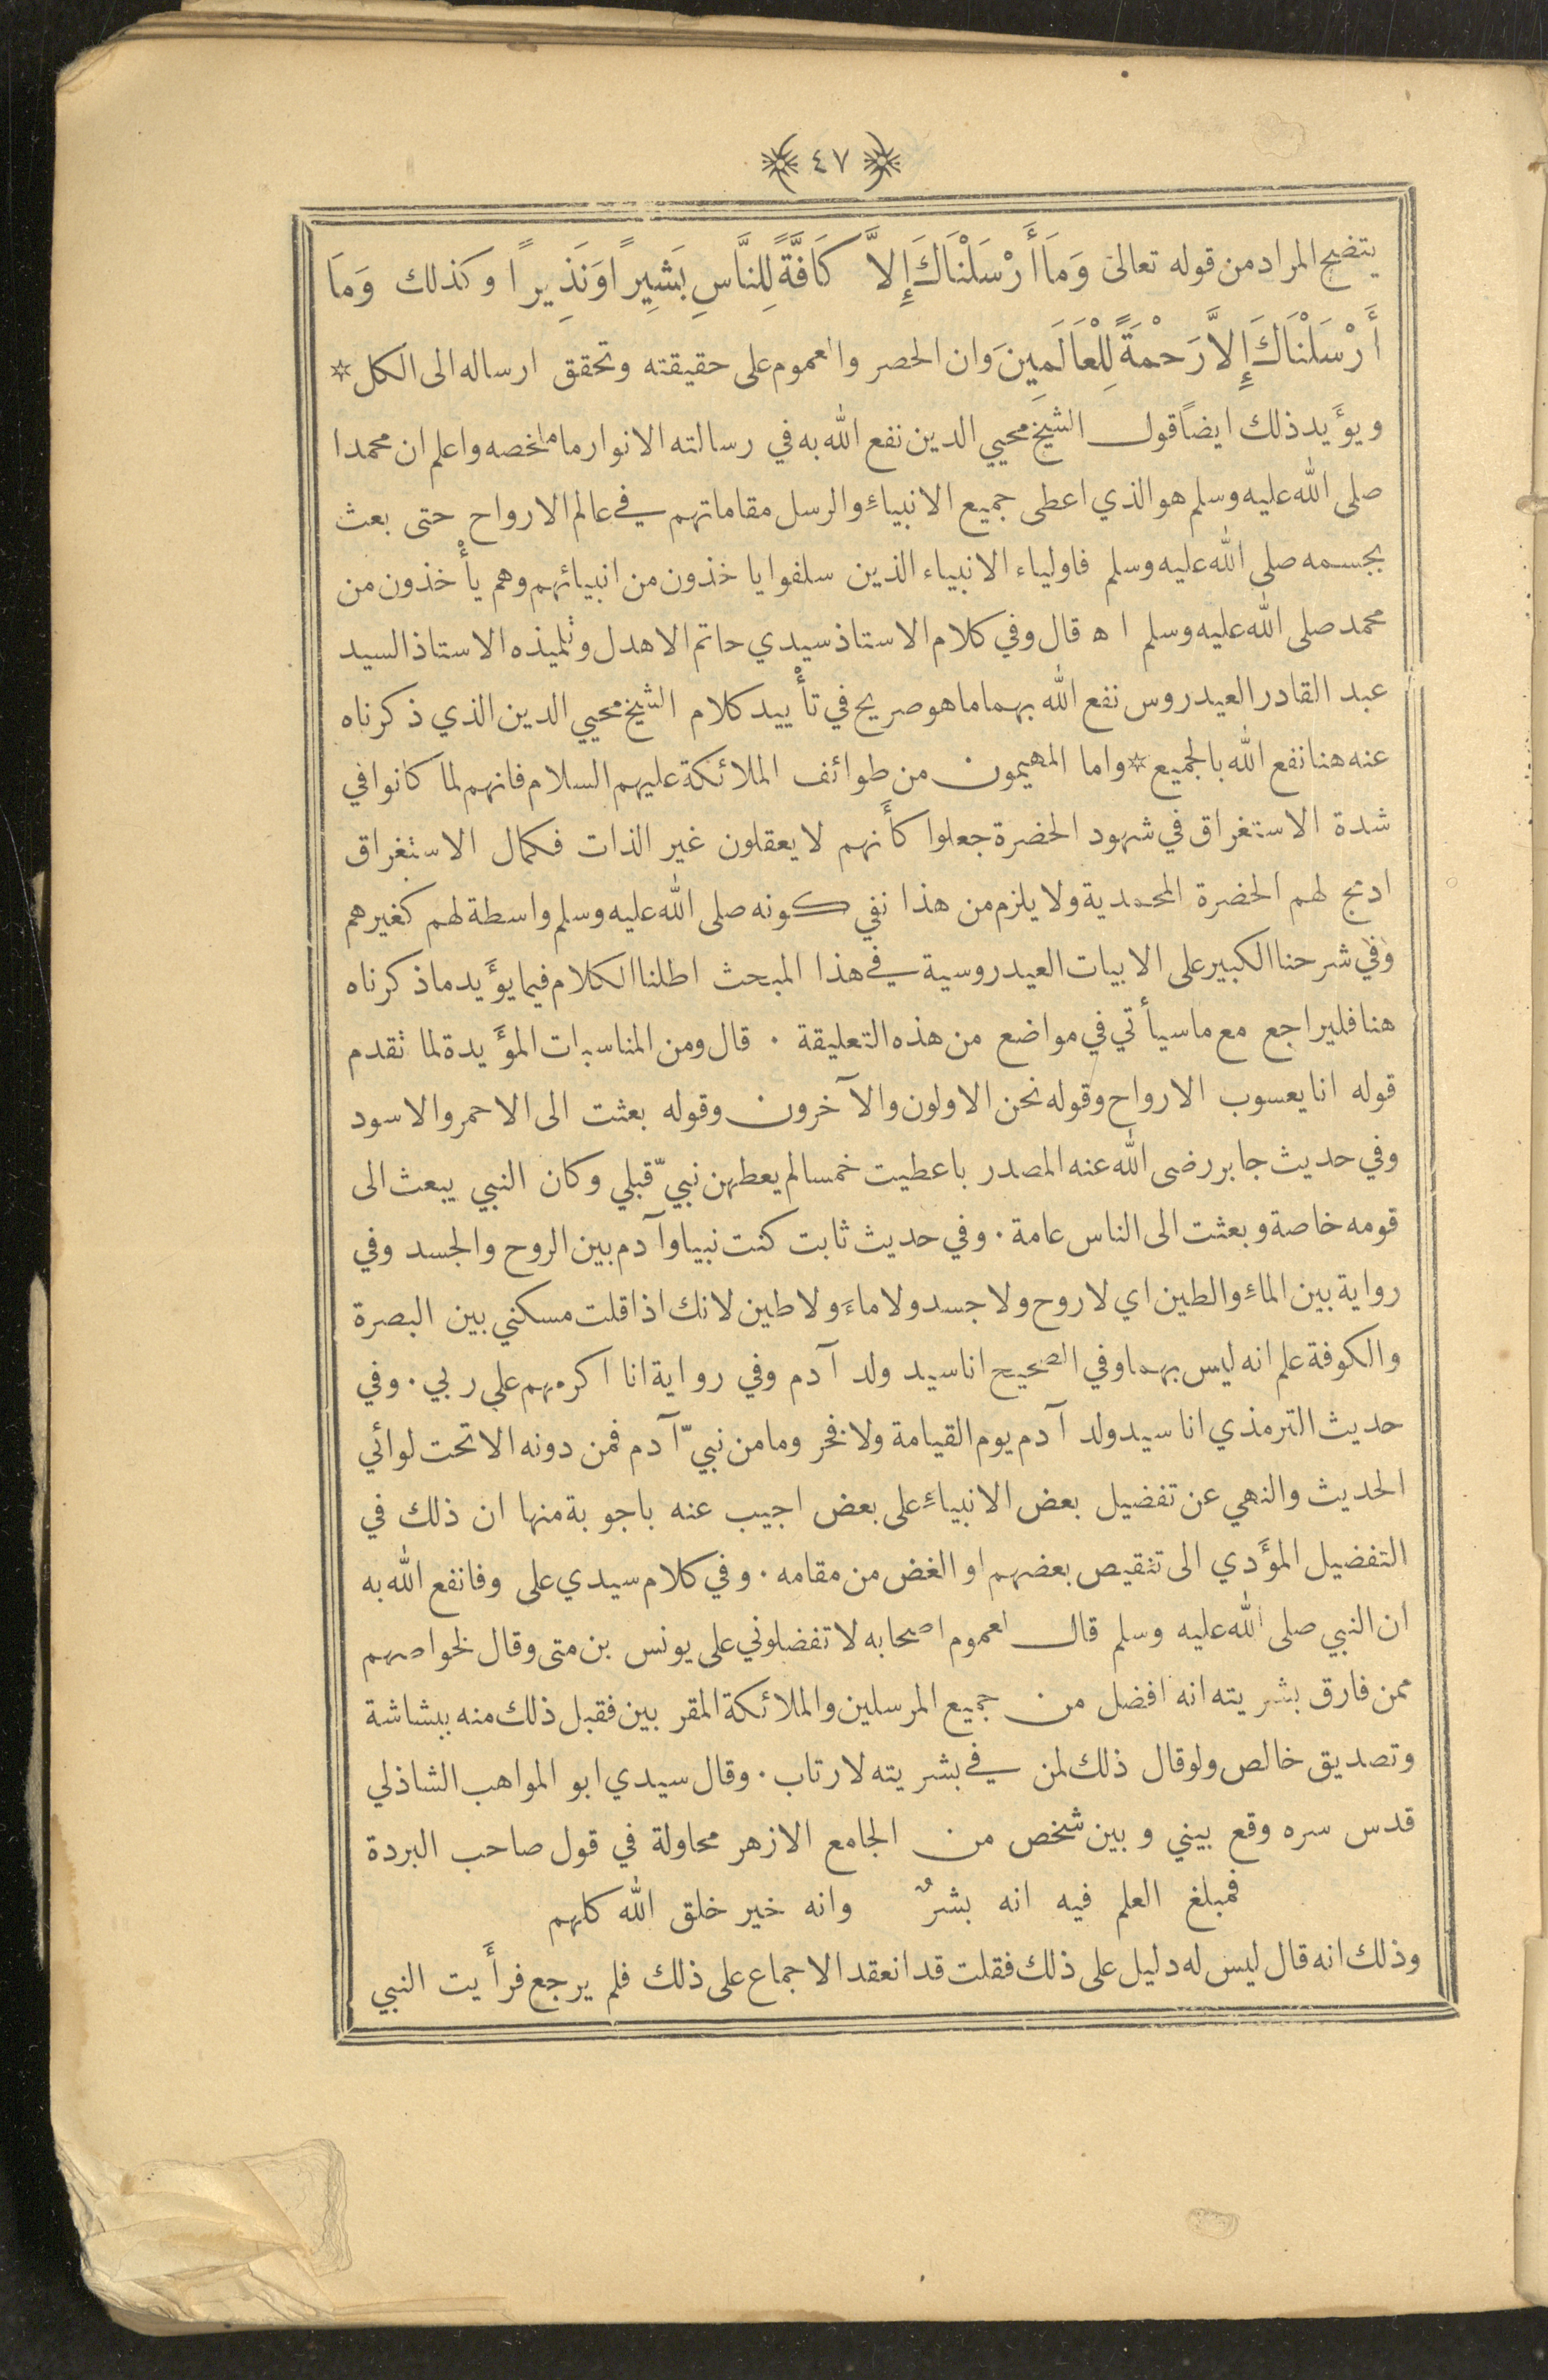 ﴿ ٤٧ ﴾
يتضح المراد من قوله تعالى وَمَا أَرْسَلْنَاكَ إِلاَّ كَافَّةً لِلنَّاسِ بَشِيرًا وَنَذِيرًا وكذلك وَمَا
أَرْسَلْنَاكَ إِلاَّ رَحْمَةً لِلْعَالَمِينَ وان الحصر والعموم على حقيقته وتحقق ارساله الى الكل *
ويؤَيد ذلك ايضاً قول الشيخ محيي الدين نفع الله به في رسالته الانوار ما ملخصه واعلم ان محمدا
صلى الله عليه وسلم هو الذي اعطى جميع الانبياءِ والرسل مقاماتهم في عالم الارواح حتى بعث
بجسمه صلى الله عليه وسلم فاولياء الانبياء الذين سلفوا ياخذون من انبيائهم وهم يأْخذون من
محمد صلى الله عليه وسلم اه قال وفي كلام الاستاذ سيدي حاتم الاهدل وتلميذه الاستاذ السيد
عبد القادر العيدروس نفع الله بهما ما هو صريح في تأْييد كلام الشيخ محيي الدين الذي ذكرناه
عنه هنا نفع الله بالجميع * واما المهيمون من طوائف الملائكة عليهم السلام فانهم لما كانوا في
شدة الاستغراق في شهود الحضرة جعلوا كأَنهم لا يعقلون غير الذات فكمال الاستغراق
ادمج لهم الحضرة المحمدية ولا يلزم من هذا نفي كونه صلى الله عليه وسلم واسطة لهم كغيرهم
وفي شرحنا الكبير على الابيات العيدروسية في هذا المبحث اطلنا الكلام فيما يؤَيد ما ذكرناه
هنا فليراجع مع ما سيأتي في مواضع من هذه التعليقة . قال ومن المناسبات المؤَيدة لما تقدم
قوله انا يعسوب الارواح وقوله نحن الاولون والآخرون وقوله بعثت الى الاحمر والاسود
وفي حديث جابر رضى الله عنه المصدر باعطيت خمسا لم يعطهن نبيّ قبلي وكان النبي يبعث الى
قومه خاصة وبعثت الى الناس عامة . وفي حديث ثابت كنت نبيا وآدم بين الروح والجسد وفي
رواية بين الماءِ والطين اي لا روح ولا جسد ولا ماءَ ولا طين لانك اذا قلت مسكني بين البصرة
والكوفة علم انه ليس بهما وفي الصحيح انا سيد ولد آدم وفي رواية انا اكرمهم على ربي . وفي
حديث الترمذي انا سيد ولد آدم يوم القيامة ولا فخر وما من نبيّ آدم فمن دونه الا تحت لوائي
الحديث والنهي عن تفضيل بعض الانبياءِ على بعض اجيب عنه باجوبة منها ان ذلك في
التفضيل المؤَدي الى تنقيص بعضهم او الغض من مقامه . وفي كلام سيدي على وفا نفع الله به
ان النبي صلى الله عليه وسلم قال لعموم اصحابه لا تفضلوني على يونس بن متى وقال لخواصهم
ممن فارق بشريته انه افضل من جميع المرسلين والملائكة المقربين فقبل ذلك منه ببشاشة
وتصديق خالص ولو قال ذلك لمن في بشريته لارتاب . وقال سيدي ابو المواهب الشاذلي
قدس سره وقع بيني وبين شخص من الجامع الازهر محاولة في قول صاحب البردة
فمبلغ العلم فيه انه بشرٌ وانه خير خلق الله كلهم
وذلك انه قال ليس له دليل على ذلك فقلت قد انعقد الاجماع على ذلك فلم يرجع فرأَيت النبي